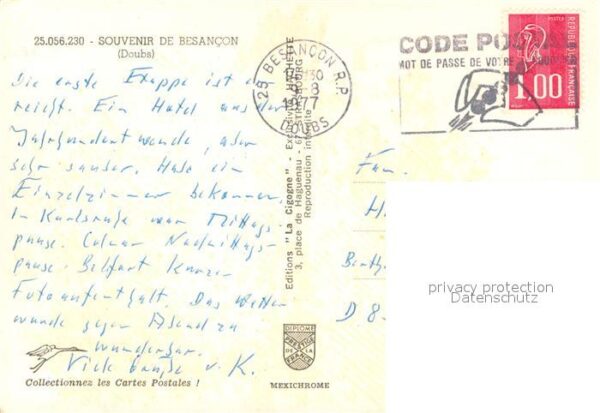 25.056.230 - SOUVENIR DE BESANÇON
(Doubs)
Die erste Etappe ist er
reicht. Ein Hotel aus der
Jahrhundertwende, aber
sehr sauber. Habe ein
Einzelzimmer bekommen.
In Karlsruhe war Mittags-
pause. Colmar Nachmittags-
pause. Belfort kurzer
Fotoaufenthalt. Das Wetter
wurde gegen Abend zu
wunderbar.
Viele Grüße v. K.
Collectionnez les Cartes Postales !
Editions "La Cigogne" - Exclusivité HACHETTE
3, place de Haguenau - 67 STRASBOURG
Reproduction interdite
DIPLOME
PRESTIGE
DE LA
FRANCE
MEXICHROME
25 BESANÇON R.P.
1977
DOUBS
CODE POSTAL
MOT DE PASSE DE VOTRE
POSTES
REPUBLIQUE FRANÇAISE
1,00
Fam.
H
D 8-
privacy protection
Datenschutz